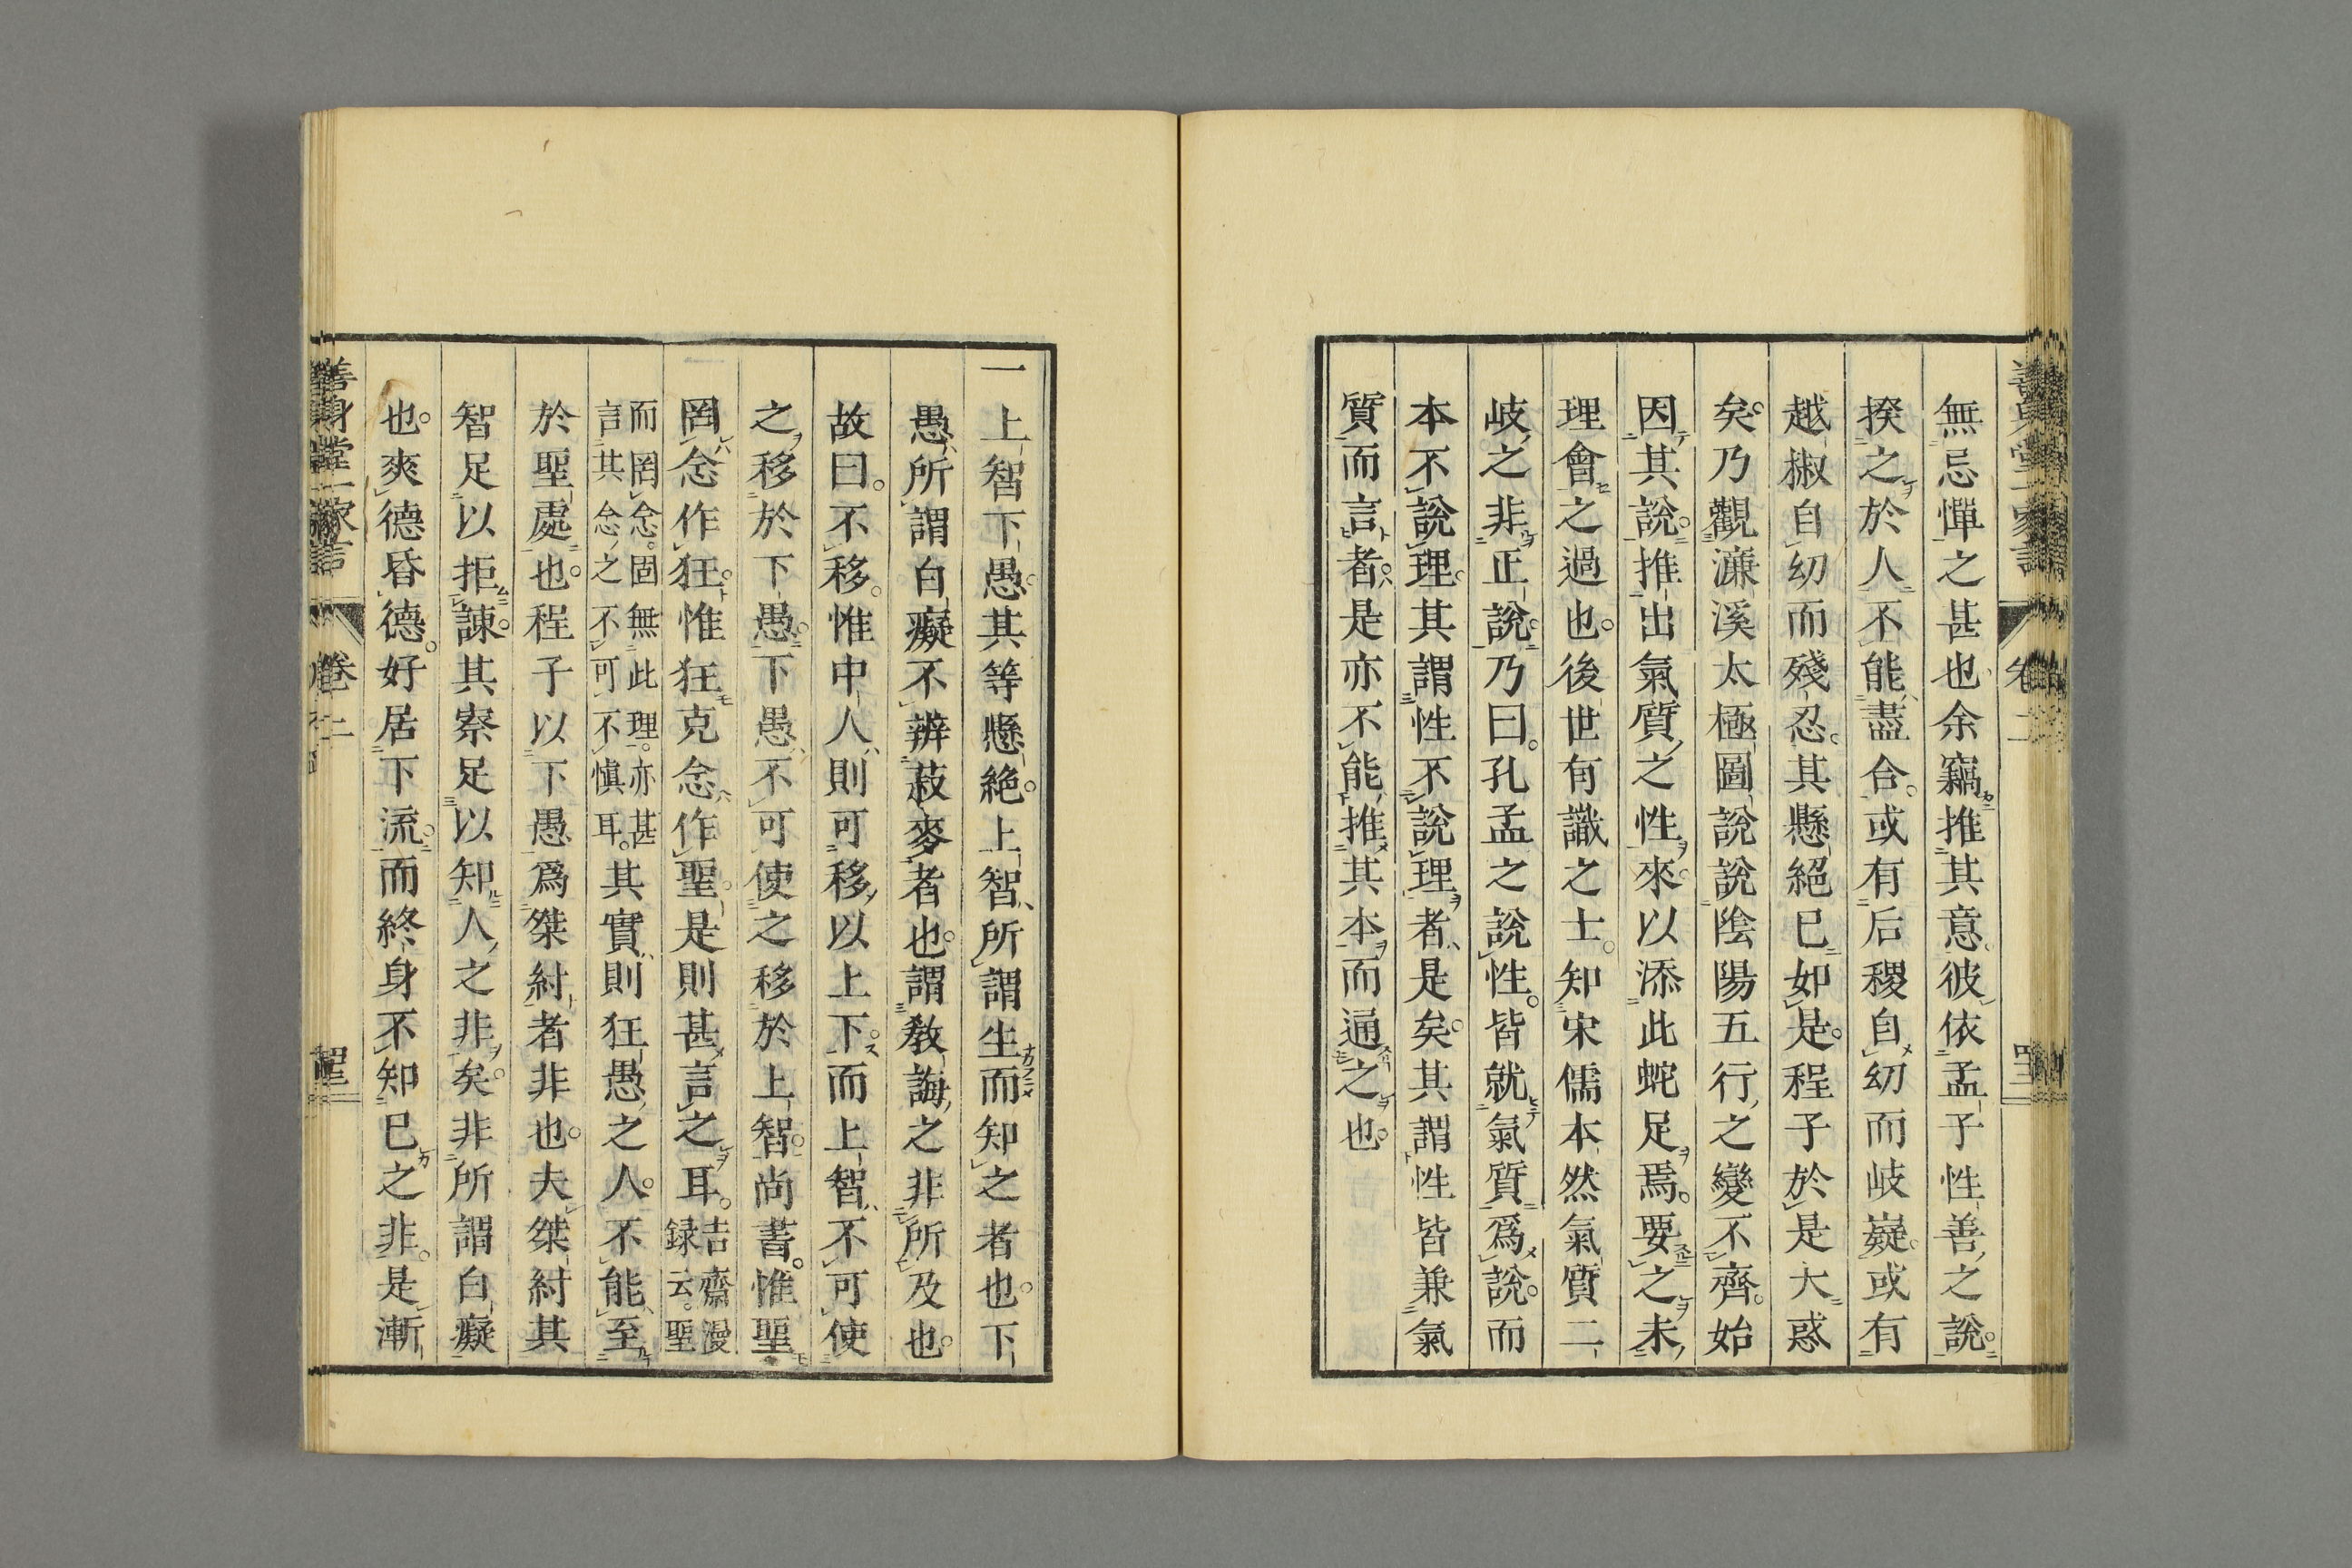 無忌憚之甚也余竊推其意彼依孟子性善之說
揆之於人不能盡合。或有后稷自幼而岐嶷。或有
越椒自幼而殘忍。其懸絕已如是。程子於是大惑
矣。乃觀濂溪太極圖說說陰陽五行之變不齊。始
因其說。推出氣質之性來。以添此蛇足焉。要之未
理會之過也。後世有識之士。知宋儒本然氣質二
岐之非正說。乃曰。孔孟之說性。皆就氣質爲說。而
本不說理。其謂性不說理者是矣。其謂性皆兼氣
質而言者。是亦不能推其本而通之也。
一上智下愚。其等懸絕。上智所謂生而知之者也。下
愚所謂白癡不辨菽麥者也。謂教誨之非所及也。
故曰。不移。惟中人則可移以上下。而上智不可使
之移於下愚。下愚不可使之移於上智。尚書。惟聖
罔念作狂。惟狂克念作聖。是則甚言之耳。吉齋漫
録云。聖
而罔念。固無此理。亦甚
言其念之不可不愼耳。其實則狂愚之人。不能至
於聖處也。程子以下愚爲桀紂者非也。夫桀紂其
智足以拒諫。其察足以知人之非矣。非所謂白癡
也。爽德昏德。好居下流。而終身不知已之非。是漸
善身堂一家言
卷二